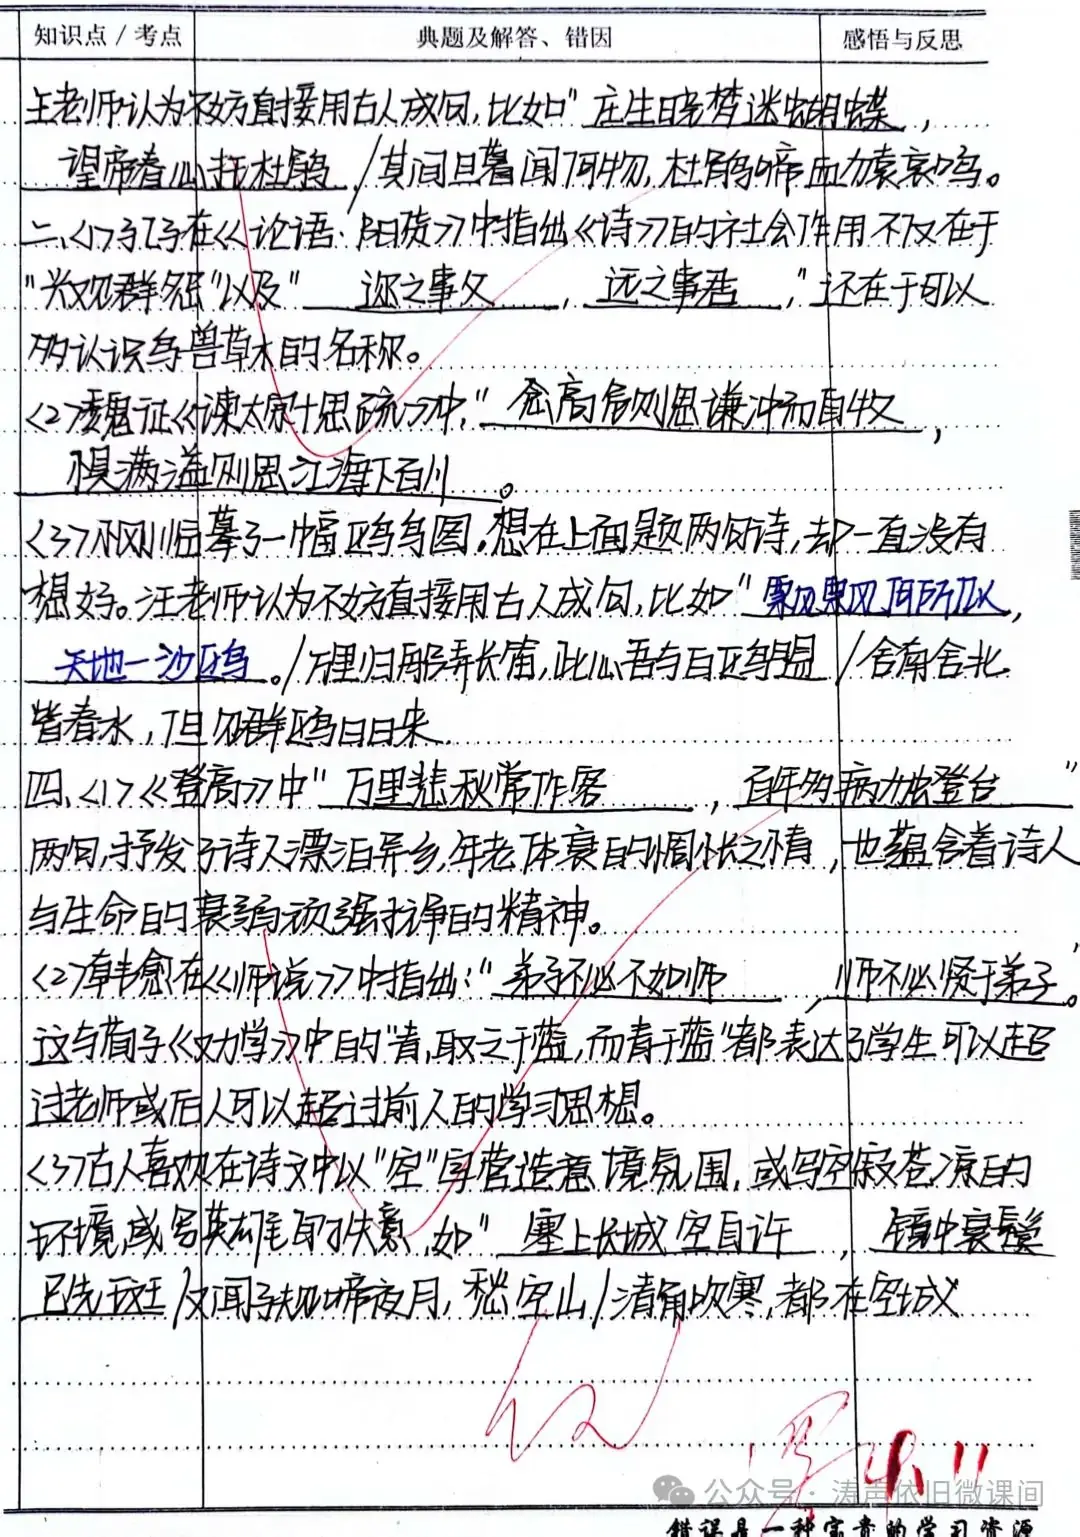 知识点 / 考点 典题及解答、错因 感悟与反思
王老师认为不妨直接用古人成句,比如"庄生晓梦迷蝴蝶,
望帝春心托杜鹃/其间旦暮闻何物,杜鹃啼血猿哀鸣。
二、<1>孔子在《论语·阳货》中指出《诗》的社会作用不仅在于
"兴观群怨"以及"迩之事父,远之事君,"还在于可以
多认识鸟兽草木的名称。
<2>魏征《谏太宗十思疏》中,"念高危则思谦冲而自牧,
惧满溢则思江海下百川。
<3>小刚临摹了一幅鸥鸟图,想在上面题两句诗,却一直没有
想好。汪老师认为不妨直接用古人成句,比如"飘飘何所似,
天地一沙鸥。/万里归船弄长笛,此心吾与白鸥盟/舍南舍北
皆春水,但见群鸥日日来.
四、<1>《登高》中"万里悲秋常作客,百年多病独登台"
两句,抒发了诗人漂泊异乡,年老体衰的惆怅之情,也蕴含着诗人
与生命的衰弱顽强抗争的精神。
<2>韩愈在《师说》中指出:"弟子不必不如师,师不必贤于弟子"。
这与荀子《劝学》中的"青,取之于蓝,而青于蓝"都表达了学生可以超
过老师或后人可以超过前人的学习思想。
<3>古人喜欢在诗文中以"空"字营造意境氛围,或写空寂苍凉的
环境,或写英雄的失意,如"塞上长城空自许,镜中衰鬓
已先斑/又闻子规啼夜月,愁空山/清角吹寒,都在空城
公众号·涛声依旧微课间
错误是一种宝贵的学习资源